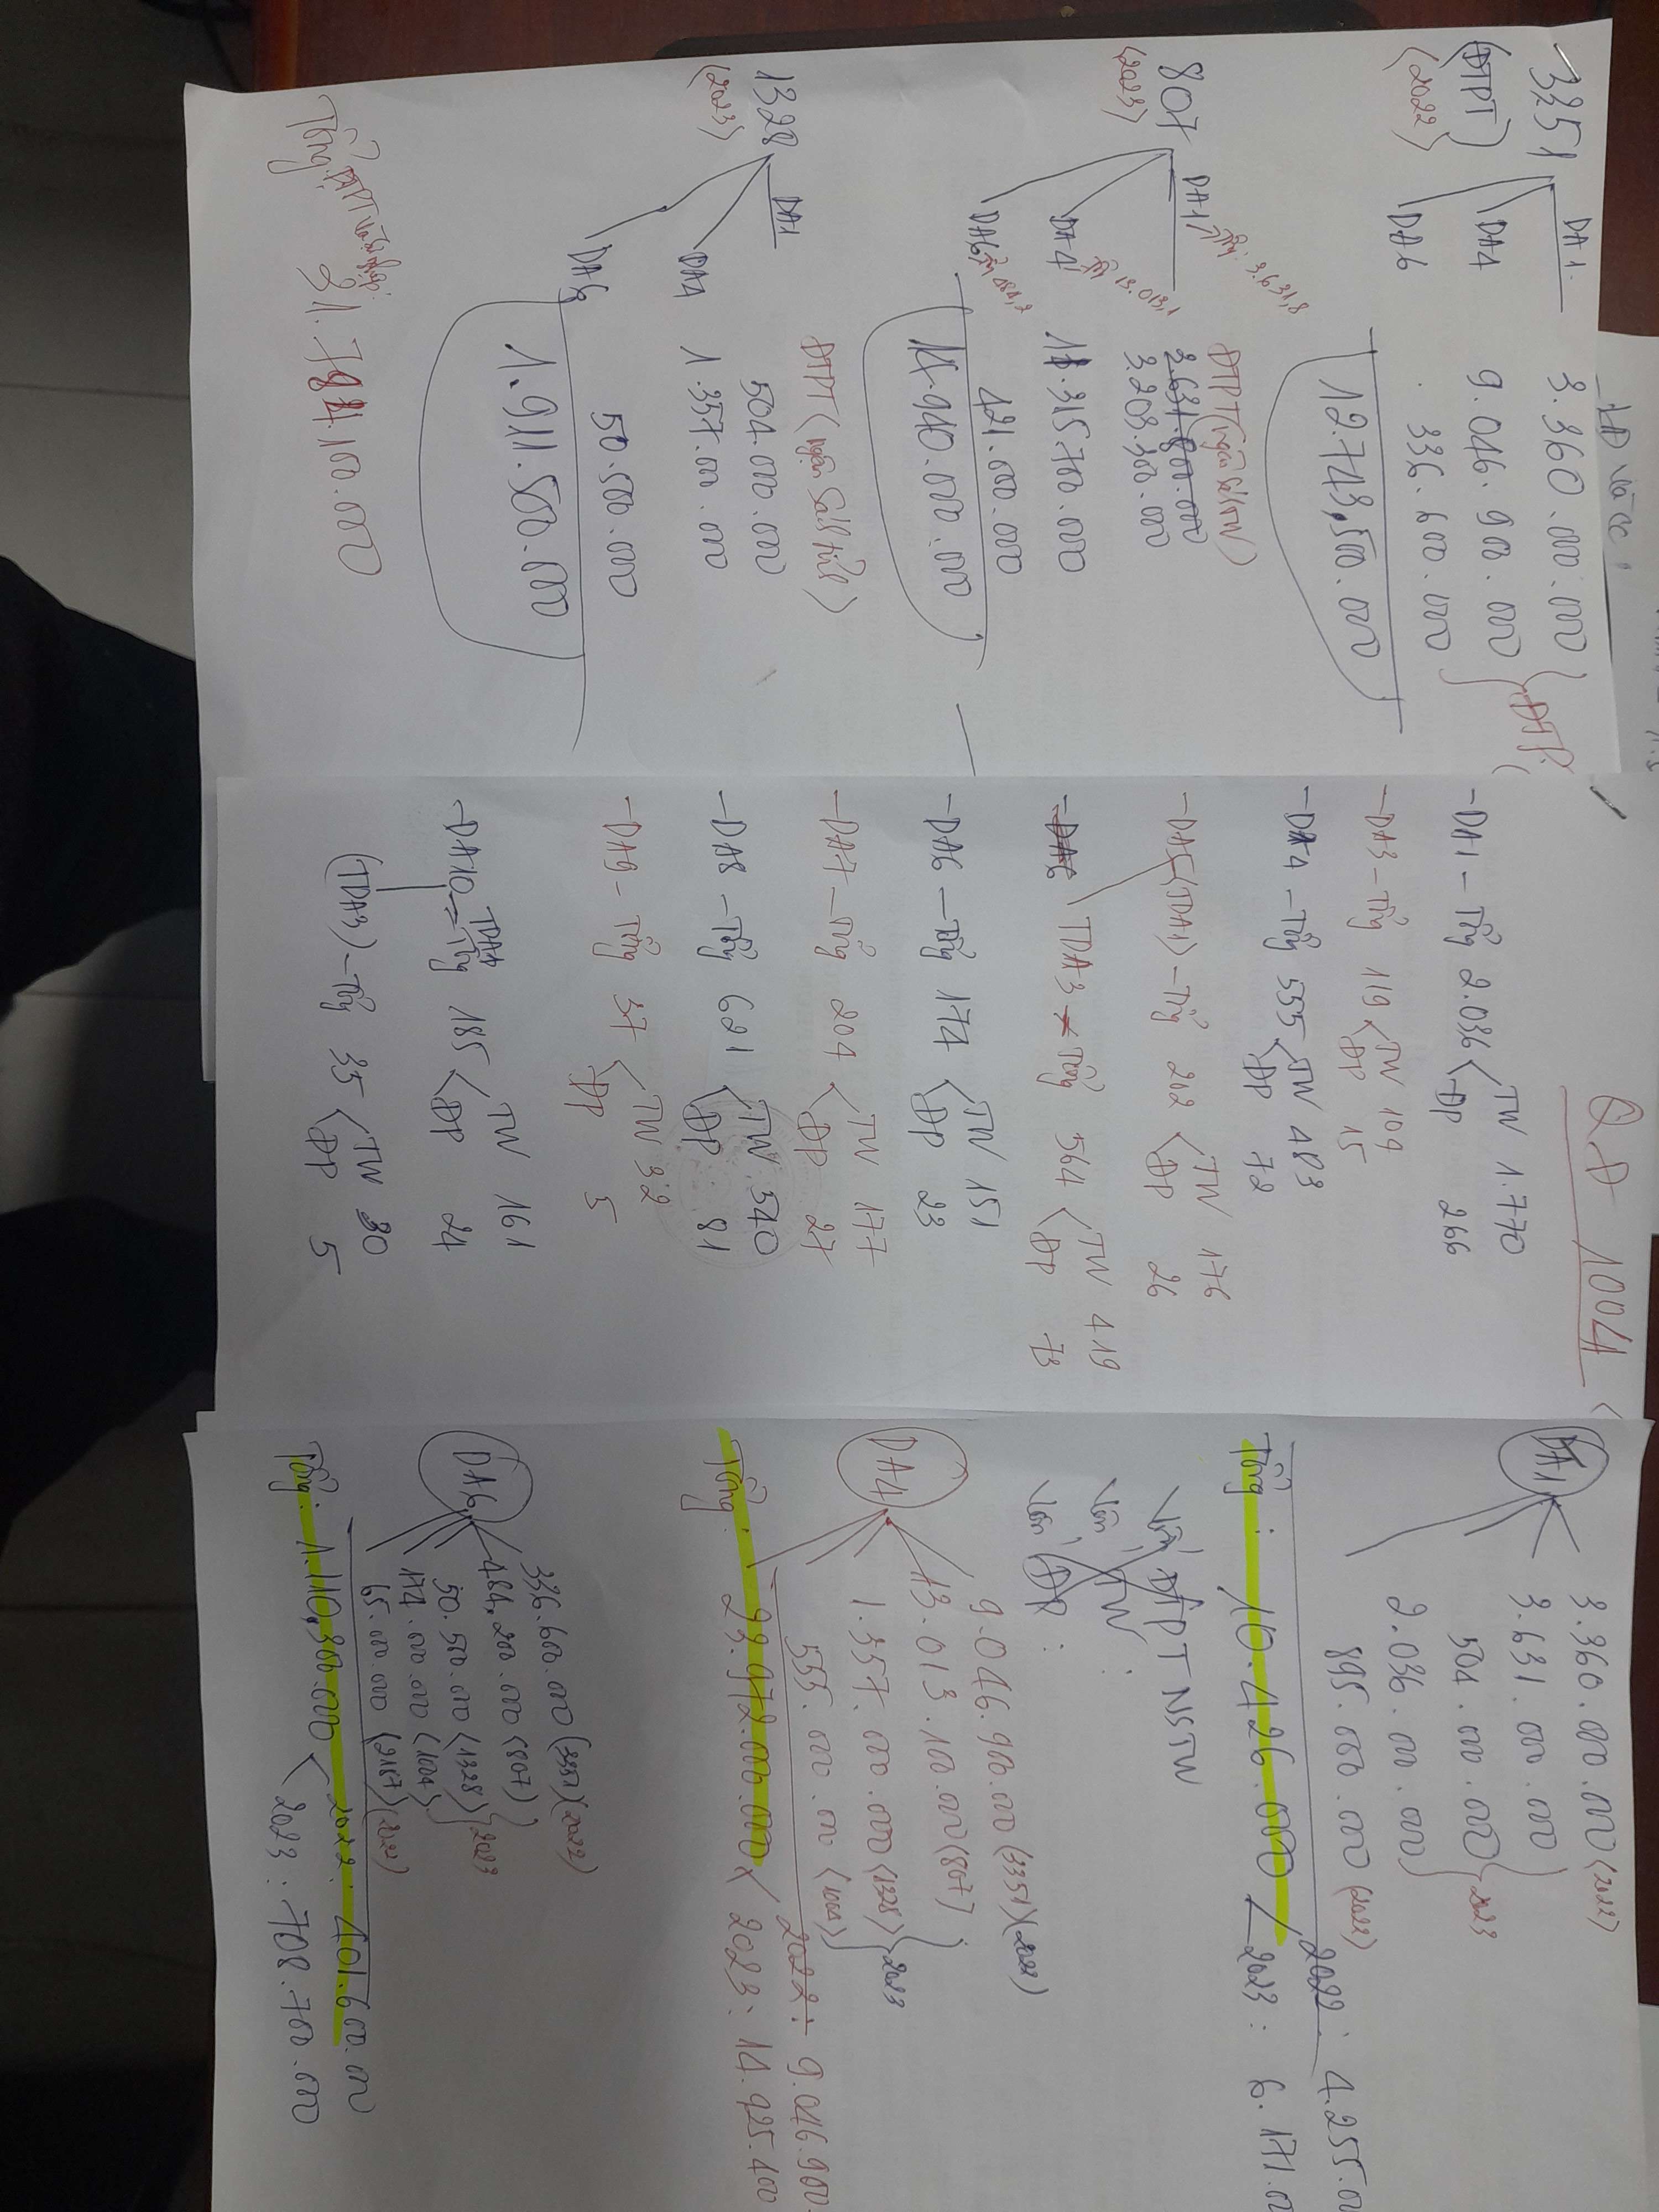 3351
(ĐTPT)
(2022)
DA1
3.360.000.000
DA4
9.046.900.000
DA6
336.600.000
12.743.500.000
807
(2023)
DA1
3.631,8
ĐTPT
2.631.800.000
3.203.300.000
DA4
13.013,1
11.315.700.000
DA6
484,2
421.000.000
14.940.000.000
1328
(2023)
ĐTPT (ngân sách tỉnh)
DA1
504.000.000
DA4
1.357.000.000
DA6
50.500.000
1.911.500.000
Tổng
31.784.100.000
QĐ 1004
- DA1 - Tổng 2.036 < TW 1.770
ĐP 266
- DA3 - Tổng 119 < TW 109
ĐP 15
- DA4 - Tổng 555 < TW 483
ĐP 72
- DA5 (TDA1) - Tổng 202 < TW 176
ĐP 26
- DA6
TDA3 - Tổng 564 < TW 419
ĐP 73
- DA6 - Tổng 174 < TW 151
ĐP 23
- DA7 - Tổng 204 < TW 177
ĐP 27
- DA8 - Tổng 621 < TW 540
ĐP 81
- DA9 - Tổng 37 < TW 32
ĐP 5
- DA10 - Tổng 185 < TW 161
ĐP 24
(TDA3) - Tổng 35 < TW 30
ĐP 5
DA1
3.360.000.000 (2022)
3.631.000.000
504.000.000
2023
2.036.000.000
895.000.000 (2022)
2022: 4.255.0
Tổng: 10.426.000 < 2023: 6.171.0
Vốn ĐTPT NSTW
Vốn TW:
Vốn ĐP:
DA4
9.046.900.000 (3351) (2022)
13.013.100.000 (807)
1.357.000.000 (1328)
2023
555.000.000 (1004)
2022: 9.046.900.
Tổng: 23.972.000.000 < 2023: 14.925.100
DA6
336.600.000 (3351) (2022)
484.200.000 (807)
50.500.000 (1328)
2023
174.000.000 (1004)
65.000.000 (2187) (2022)
Tổng: 1.110.300.000 < 2022: 401.600.000
2023: 708.700.000